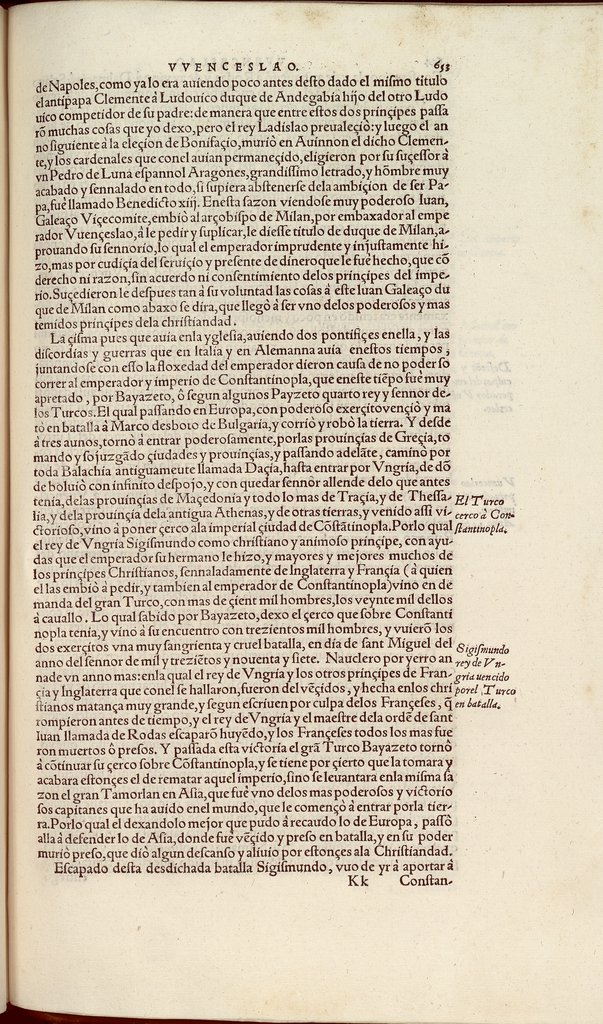 VVENCESLAO. 653
de Napoles, como ya lo era auiendo poco antes desto dado el mismo titulo
el antipapa Clemente à Ludouico duque de Andegabía hijo del otro Ludo
uico competidor de su padre: de manera que entre estos dos prinçipes passa
rõ muchas cosas que yo dexo, pero el rey Ladislao preualeçiò: y luego el an
no siguiente à la eleçion de Bonifaçio, muriò en Auinnon el dicho Clemen-
te, y los cardenales que con el auian permaneçido, eligieron por su suçessor à
vn Pedro de Luna espannol Aragones, grandissimo letrado, y hõmbre muy
acabado y sennalado en todo, si supiera abstenerse dela ambiçion de ser Pa-
pa, fuè llamado Benedicto xiij. En esta sazon viendose muy poderoso Iuan,
Galeaço Viçecomite, embiò al arçobispo de Milan, por embaxador al empe
rador Vuençeslao, à le pedir y suplicar, le diesse titulo de duque de Milan, a-
prouando su sennorio, lo qual el emperador imprudente y injustamente hi-
zo, mas por cudiçia del seruiçio y presente de dinero que le fuè hecho, que cõ
derecho ni razon, sin acuerdo ni consentimiento delos prinçipes del impe-
rio. Suçedieron le despues tan à su voluntad las cosas à este Iuan Galeaço du
que de Milan como abaxo se dira, que llegò à ser vno delos poderosos y mas
temidos prinçipes dela christiandad.
La çisma pues que auia enla yglesia, auiendo dos pontifiçes enella, y las
discordias y guerras que en Italia y en Alemanna auia enestos tiempos,
juntandose con esso la floxedad del emperador dieron causa de no poder so
correr al emperador y imperio de Constantinopla, que eneste tiẽpo fuè muy
apretado, por Bayazeto, ò segun algunos Payzeto quarto rey y sennor de-
los Turcos. El qual passando en Europa, con poderoso exerçito vençiò y ma
tò en batalla à Marco desboto de Bulgaria, y corriò y robò la tierra. Y desde
à tres aunos, tornò à entrar poderosamente, por las prouinçias de Greçia, to
mando y sojuzgãdo çiudades y prouinçias, y passando adelãte, caminò por
toda Balachia antiguameute llamada Daçia, hasta entrar por Vngria, de dõ
de boluiò con infinito despojo, y con quedar sennor allende delo que antes
tenia, delas prouinçias de Maçedonia y todo lo mas de Traçia, y de Thessa-
lia, y dela prouinçia dela antigua Athenas, y de otras tierras, y venido assi vi-
ctorioso, vino à poner çerco ala imperial çiudad de Cõstãtinopla. Por lo qual
el rey de Vngria Sigismundo como christiano y animoso prinçipe, con ayu-
das que el emperador su hermano le hizo, y mayores y mejores muchos de
los prinçipes Christianos, sennaladamente de Inglaterra y Françia (à quien
el las embiò à pedir, y tambien al emperador de Constantinopla) vino en de
manda del gran Turco, con mas de çient mil hombres, los veynte mil dellos
à cauallo. Lo qual sabido por Bayazeto, dexo el çerco que sobre Constanti
nopla tenia, y vino à su encuentro con trezientos mil hombres, y vuierõ los
dos exerçitos vna muy sangrienta y cruel batalla, en dia de sant Miguel del
anno del sennor de mil y treziẽtos y nouenta y siete. Nauclero por yerro an
nade vn anno mas: enla qual el rey de Vngria y los otros prinçipes de Fran-
çia y Inglaterra que conel se hallaron, fueron del vẽçidos, y hecha enlos chri
stianos matança muy grande, y segun escriuen por culpa delos Françeses, q̃
rompieron antes de tiempo, y el rey de Vngria y el maestre dela ordẽ de sant
Iuan llamada de Rodas escaparõ huyẽdo, y los Françeses todos los mas fue
ron muertos ò presos. Y passada esta victoria el grã Turco Bayazeto tornò
à cõtinuar su çerco sobre Cõstantinopla, y se tiene por çierto que la tomara y
acabara estonçes el de rematar aquel imperio, sino se leuantara enla misma sa
zon el gran Tamorlan en Asia, que fuè vno delos mas poderosos y victorio
sos capitanes que ha auido enel mundo, que le començò à entrar porla tier-
ra. Porlo qual el dexandolo mejor que pudo à recaudo lo de Europa, passò
alla à defender lo de Asia, donde fuè vẽçido y preso en batalla, y en su poder
muriò preso, que diò algun descanso y aliuio por estonçes ala Christiandad.
Escapado desta desdichada batalla Sigismundo, vuo de yr à aportar à
Kk Constan-
El Turco
cerco à Con-
stantinopla.
Sigismundo
rey de Vn-
gria uencido
por el Turco
en batalla.